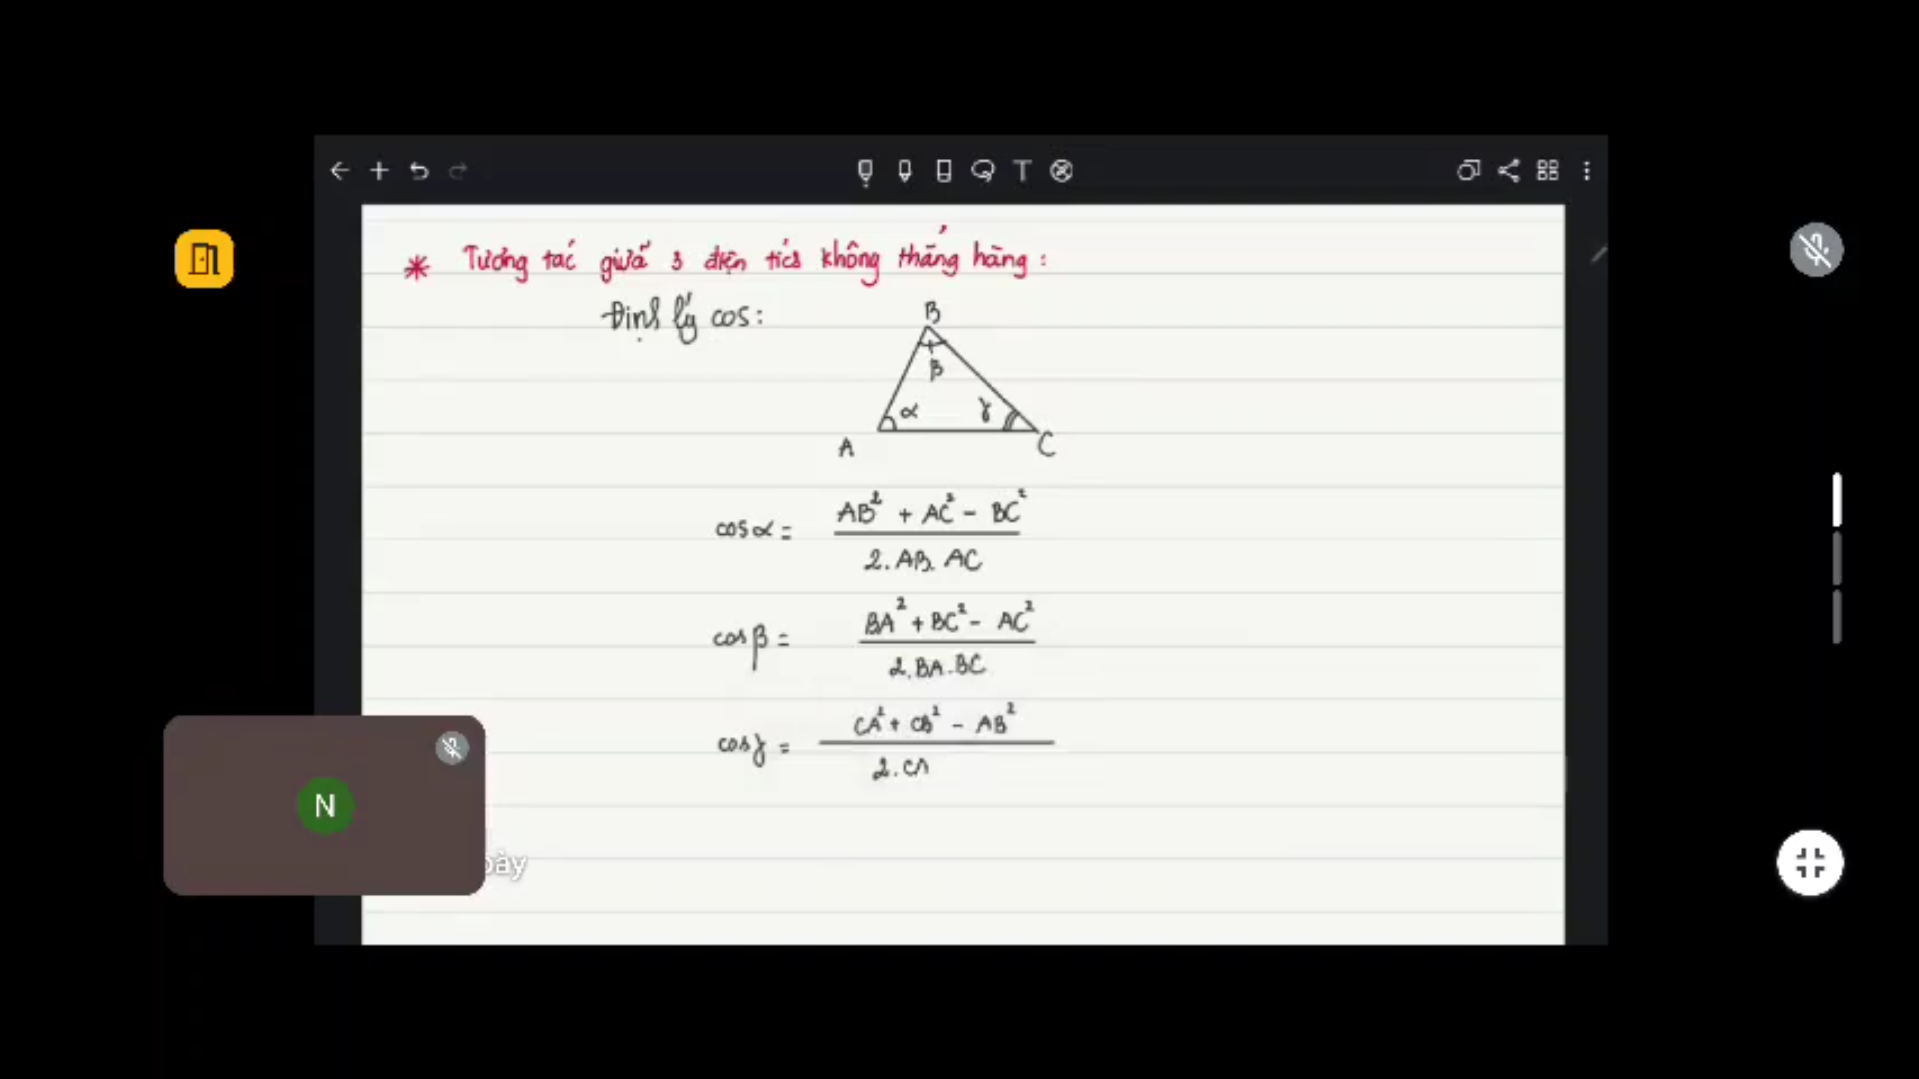 * Tương tác giữa 3 điện tích không thẳng hàng:
Định lý cos:
B
β
α γ
A C
cosα = AB² + AC² - BC² / 2.AB.AC
cosβ = BA² + BC² - AC² / 2.BA.BC
cosγ = CA² + CB² - AB² / 2.CA
N
bày